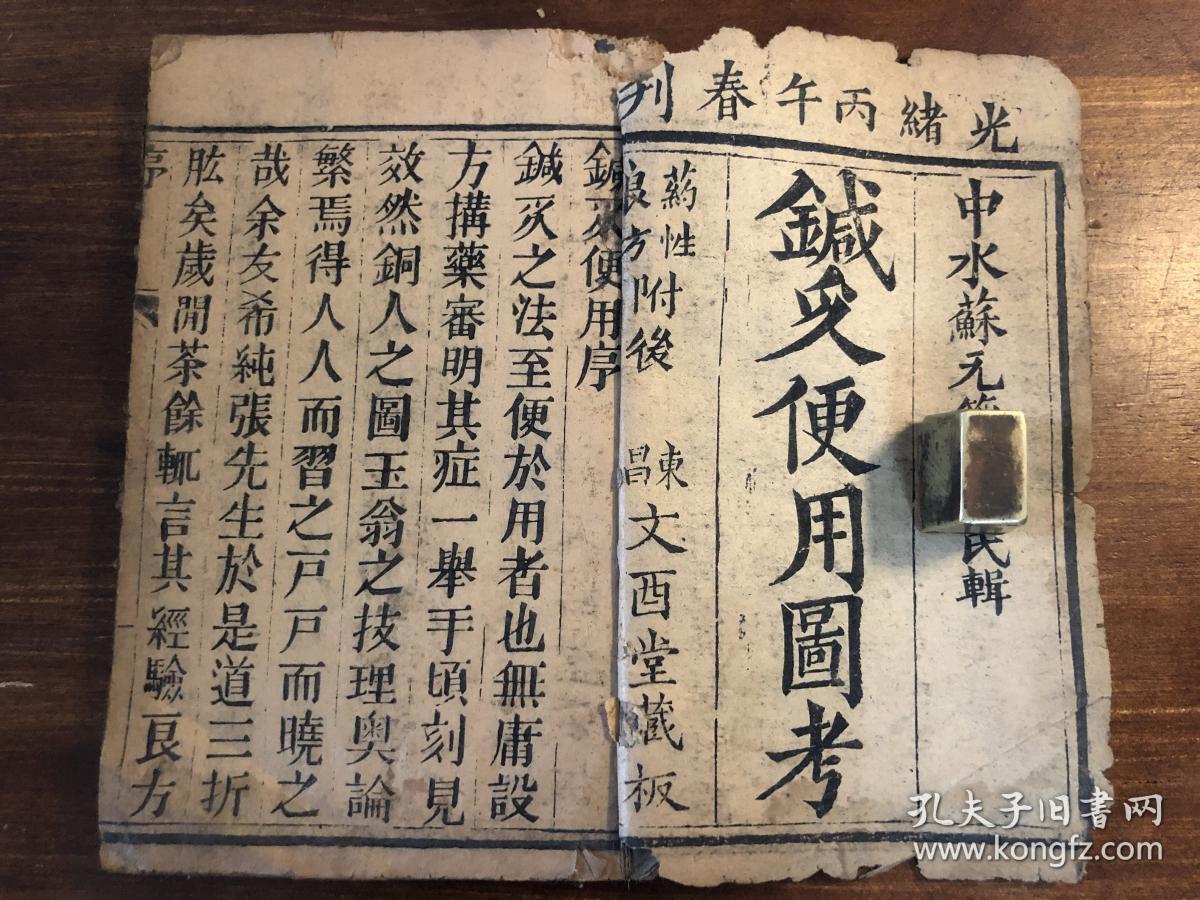 光緒丙午春刋
中水蘇元
民輯
鍼灸便用圖考
藥性
良方
附後
東昌
文酉堂藏板
鍼灸便用序
鍼灸之法至便於用者也無庸設
方搆藥審明其症一舉手頃刻見
效然銅人之圖玉翁之技理奥論
繁焉得人人而習之戸戸而曉之
哉余友希純張先生於是道三折
肱矣歲閒茶餘輒言其經驗良方
序
孔夫子旧書网
www.kongfz.com